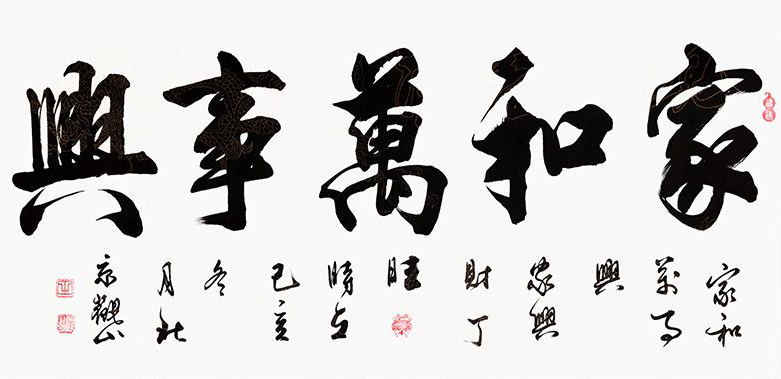 家和萬事興
家和
萬事
興
家興
財丁
時在
己亥
冬
月於
京